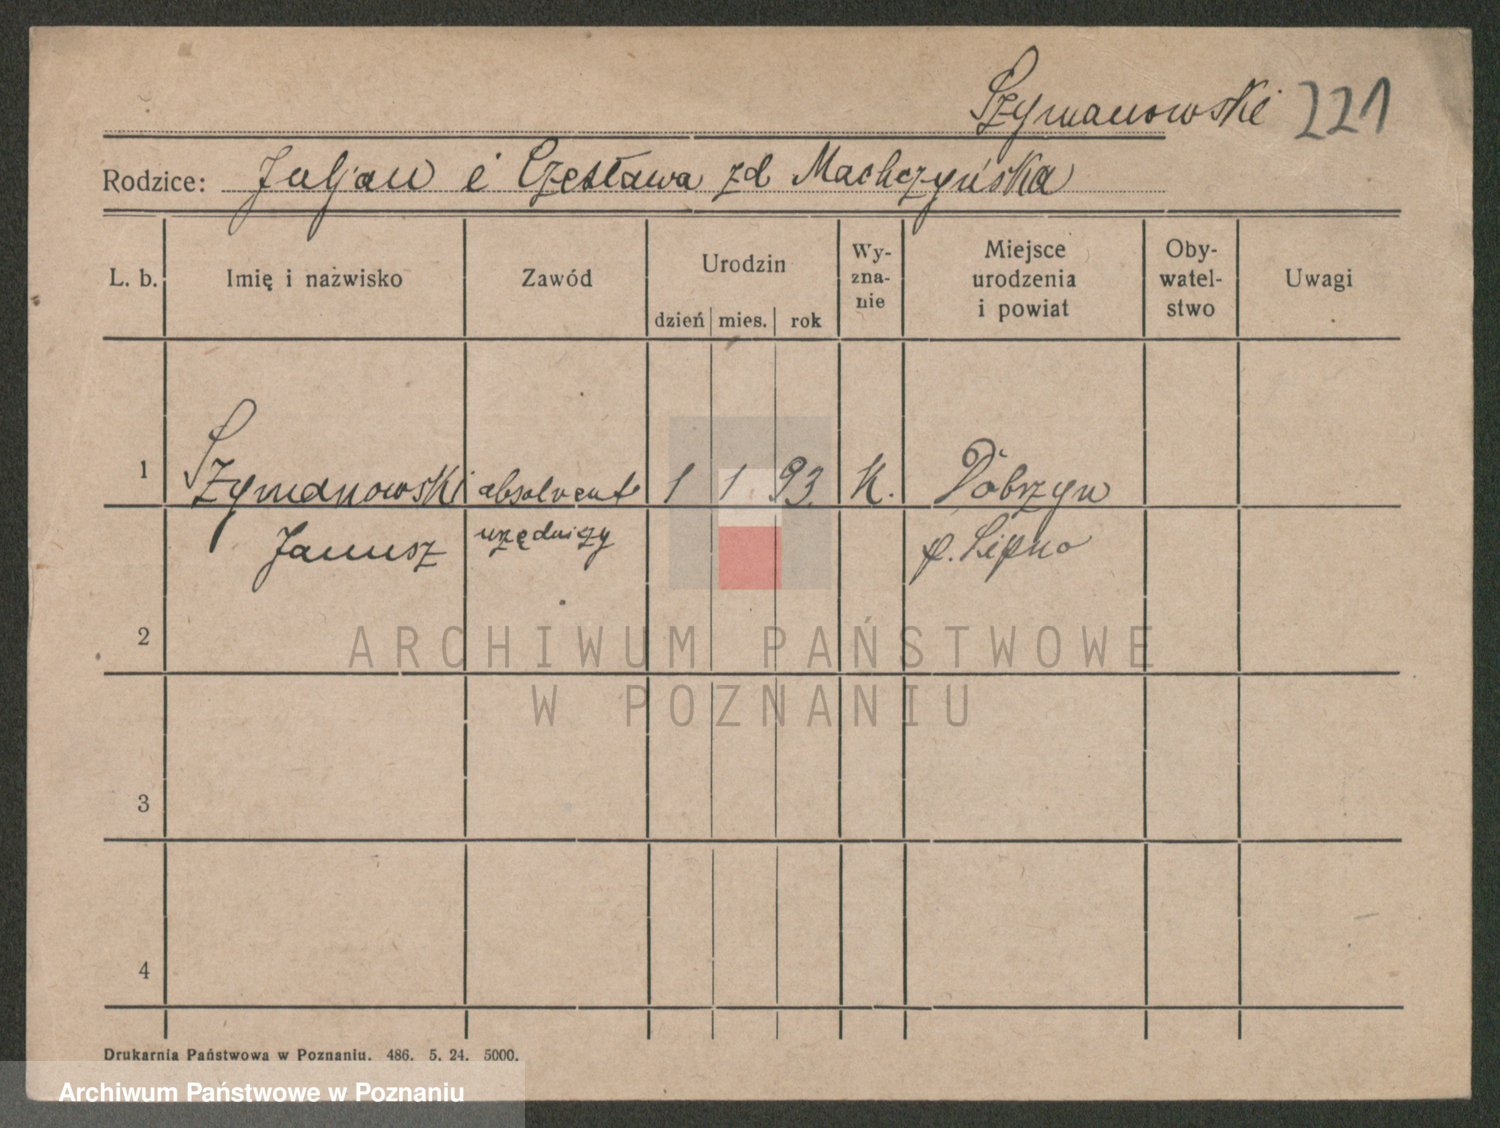 Szymanowski 221
Rodzice: Juljan i Czesława zd Machczyńska
L. b. Imię i nazwisko Zawód Urodzin dzień mies. rok Wy-zna-nie Miejsce urodzenia i powiat Oby-watel-stwo Uwagi
1 Szymanowski absolvent 1 1 93. K. Dobrzyn
Janusz urzędniczy p. Lipno
2
ARCHIWUM PAŃSTWOWE
W POZNANIU
3
4
Drukarnia Państwowa w Poznaniu. 486. 5. 24. 5000.
Archiwum Państwowe w Poznaniu